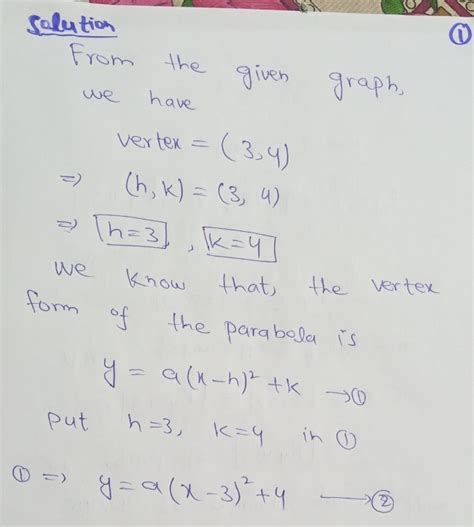 Solution ①
From the given graph,
we have
vertex = (3,4)
⇒ (h, k) = (3, 4)
⇒ h=3, , k=4
we know that, the vertex
form of the parabola is
y = a(x-h)² + k →①
put h=3, k=4 in ①
① ⇒ y = a(x-3)² + 4 →②